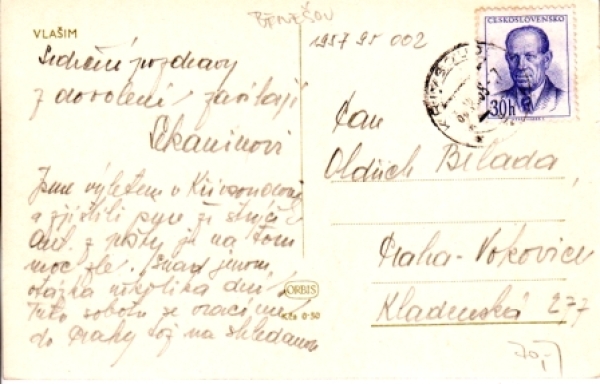 VLAŠIM
BENEŠOV
1957 95 002
ČESKOSLOVENSKO
30h
Srdečné pozdravy
z dovolené zasílají
Skaninovi
Jsme výletem v
a zjistili jsme že strýc
Ant. z pošty je na tom
moc zle. Snad jenom
otázka několika dní.
Tuto sobotu se vracíme
do Prahy toj na shledanou
ORBIS
Kčs 0·50
Pan
Oldřich Belada,
Praha-Vokovice
Kladenská 277
70,-